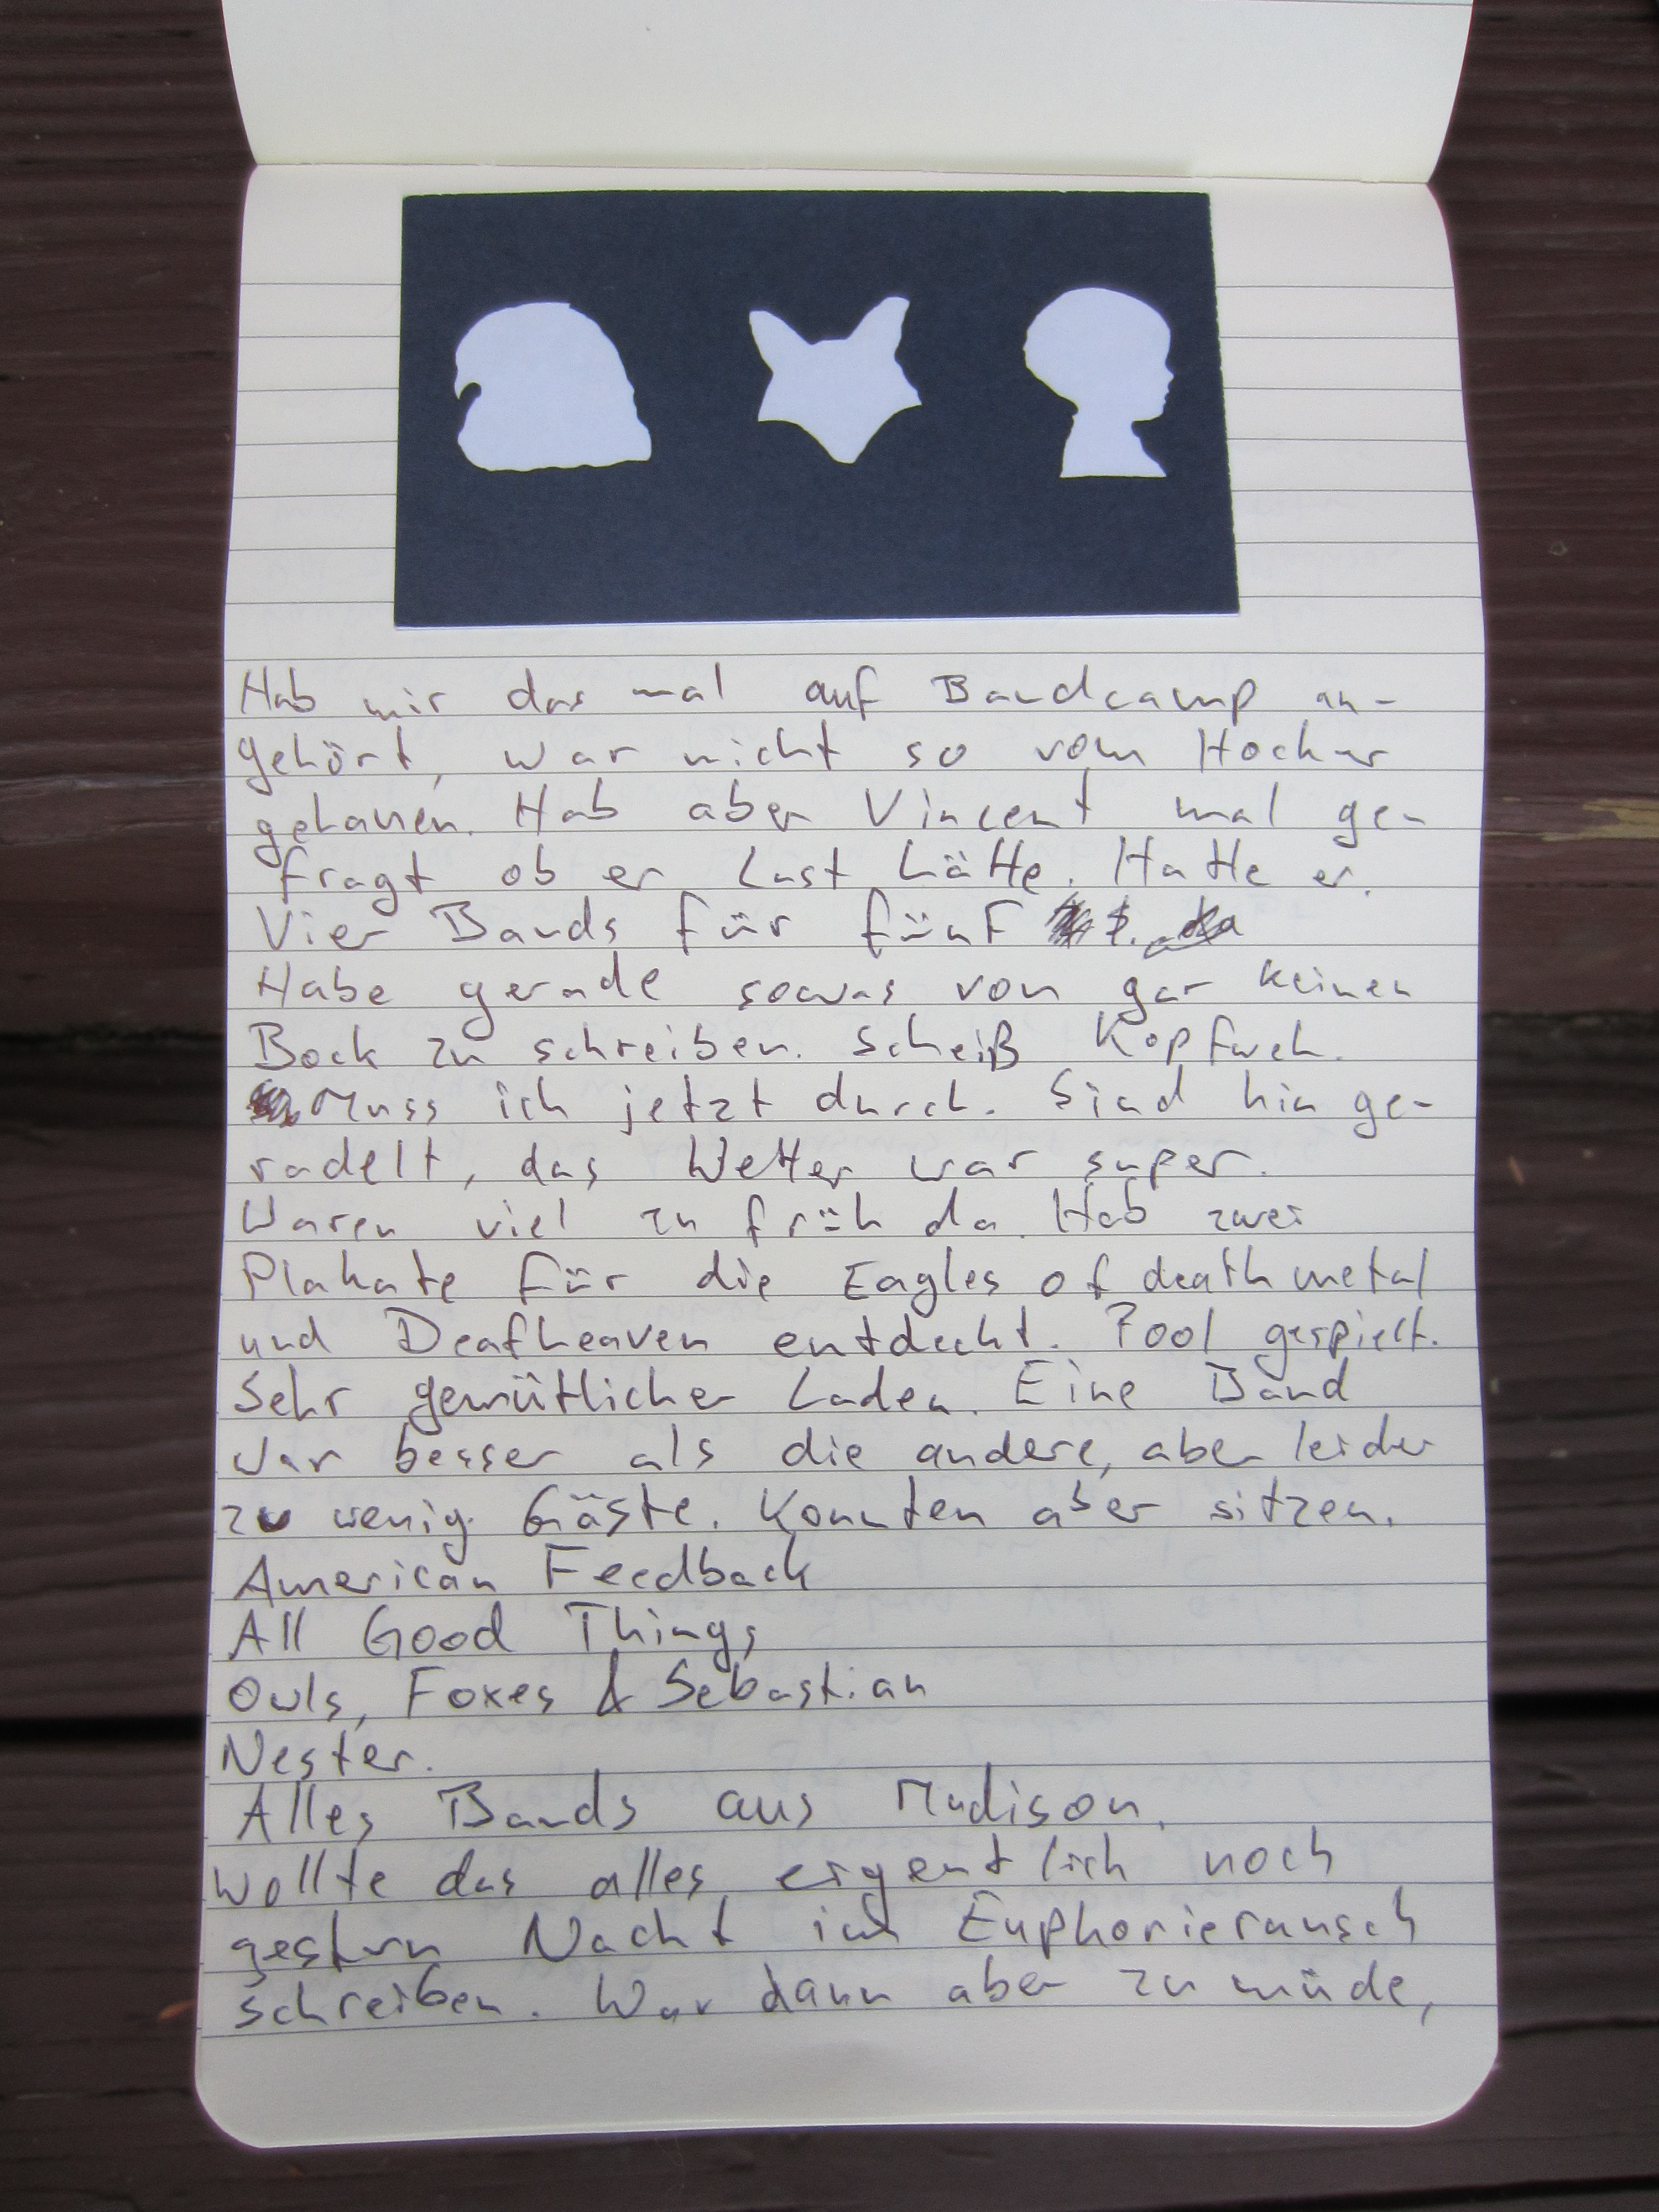 Hab mir das mal auf Bandcamp an-
gehört, war nicht so vom Hocker
gehauen. Hab aber Vincent mal ge-
fragt ob er Lust hätte. Hatte er.
Vier Bands für fünf $.
Habe gerade sowas von gar keinen
Bock zu schreiben. Scheiß Kopfweh.
Muss ich jetzt durch. Sind hin ge-
radelt, das Wetter war super.
Waren viel zu früh da. Hab zwei
Plakate für die Eagles of death metal
und Deafheaven entdeckt. Pool gespielt.
Sehr gemütlicher Laden. Eine Band
war besser als die andere, aber leider
zu wenig Gäste. Konnten aber sitzen.
American Feedback
All Good Things
Owls, Foxes & Sebastian
Nester.
Alles Bands aus Madison.
Wollte das alles eigentlich noch
gestern Nacht im Euphorierausch
schreiben. War dann aber zu müde,